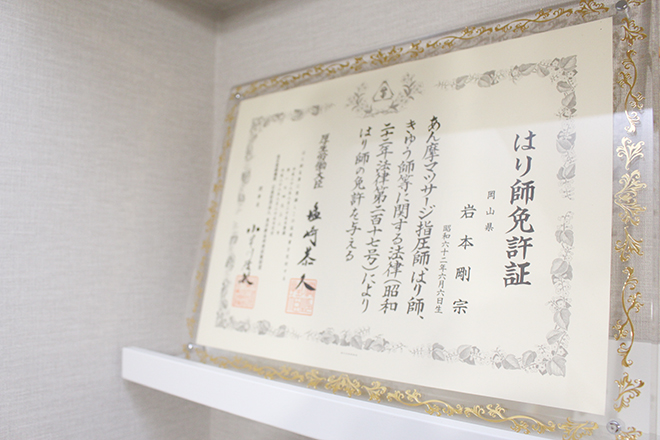 はり師免許証
岡山県
岩本剛宗
昭和六十二年六月六日生
あん摩マツサージ指圧師、はり師、
きゆう師等に関する法律(昭和
二十二年法律第二百十七号)により
はり師の免許を与える
厚生労働大臣 塩崎恭久